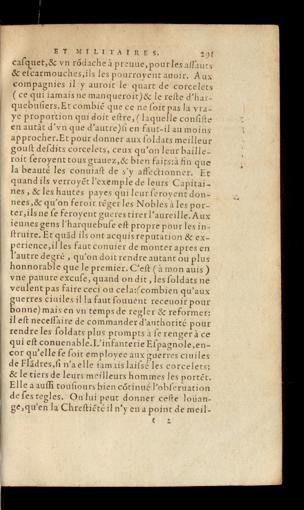 ET MILITAIRES. 291
casquet, & vn rõdache à preuue, pour les assauts
& escarmouches, ils les pourroyent auoir. Aux
compagnies il y auroit le quart de corcelets
( ce qui iamais ne manqueroit) & le reste d'har-
quebusiers. Et combiē que ce ne soit pas la vra-
ye proportion qui doit estre, (laquelle consiste
en autāt d'vn que d'autre) si en faut-il au moins
approcher. Et pour donner aux soldats meilleur
goust desdits corcelets, ceux qu'on leur baille-
roit seroyent tous grauez, & bien faits: à fin que
la beauté les conuiast de s'y affectionner. Et
quand ils verroyēt l'exemple de leurs Capitai-
nes, & les hautes payes qui leur seroyent don-
nees, & qu'on feroit régler les Nobles à les por-
ter, ils ne se feroyent gueres tirer l'aureille. Aux
ieunes gens l'harquebuse est propre pour les in-
struire. Et quād ils ont acquis reputation & ex-
perience, il les faut conuier de monter apres en
l'autre degré, qu'on doit rendre autant ou plus
honnorable que le premier. C'est (à mon auis)
vne pauure excuse, quand on dit, les soldats ne
veulent pas faire ceci ou cela: (combien qu'aux
guerres ciuiles il la faut souuent receuoir pour
bonne) mais en vn temps de regler & reformer:
il est necessaire de commander d'authorité pour
rendre les soldats plus prompts à se renger à ce
qui est conuenable. L'infanterie Espagnole, en-
cor qu'elle se soit employee aux guerres ciuiles
de Flādres, si n'a elle iamais laissé les corcelets;
& le tiers de leurs meilleurs hommes les portēt.
Elle a aussi tousiours bien cõtinué l'obseruation
de ses regles. On lui peut donner ceste louan-
ge, qu'en la Chrestiēté il n'y en a point de meil-
t 2